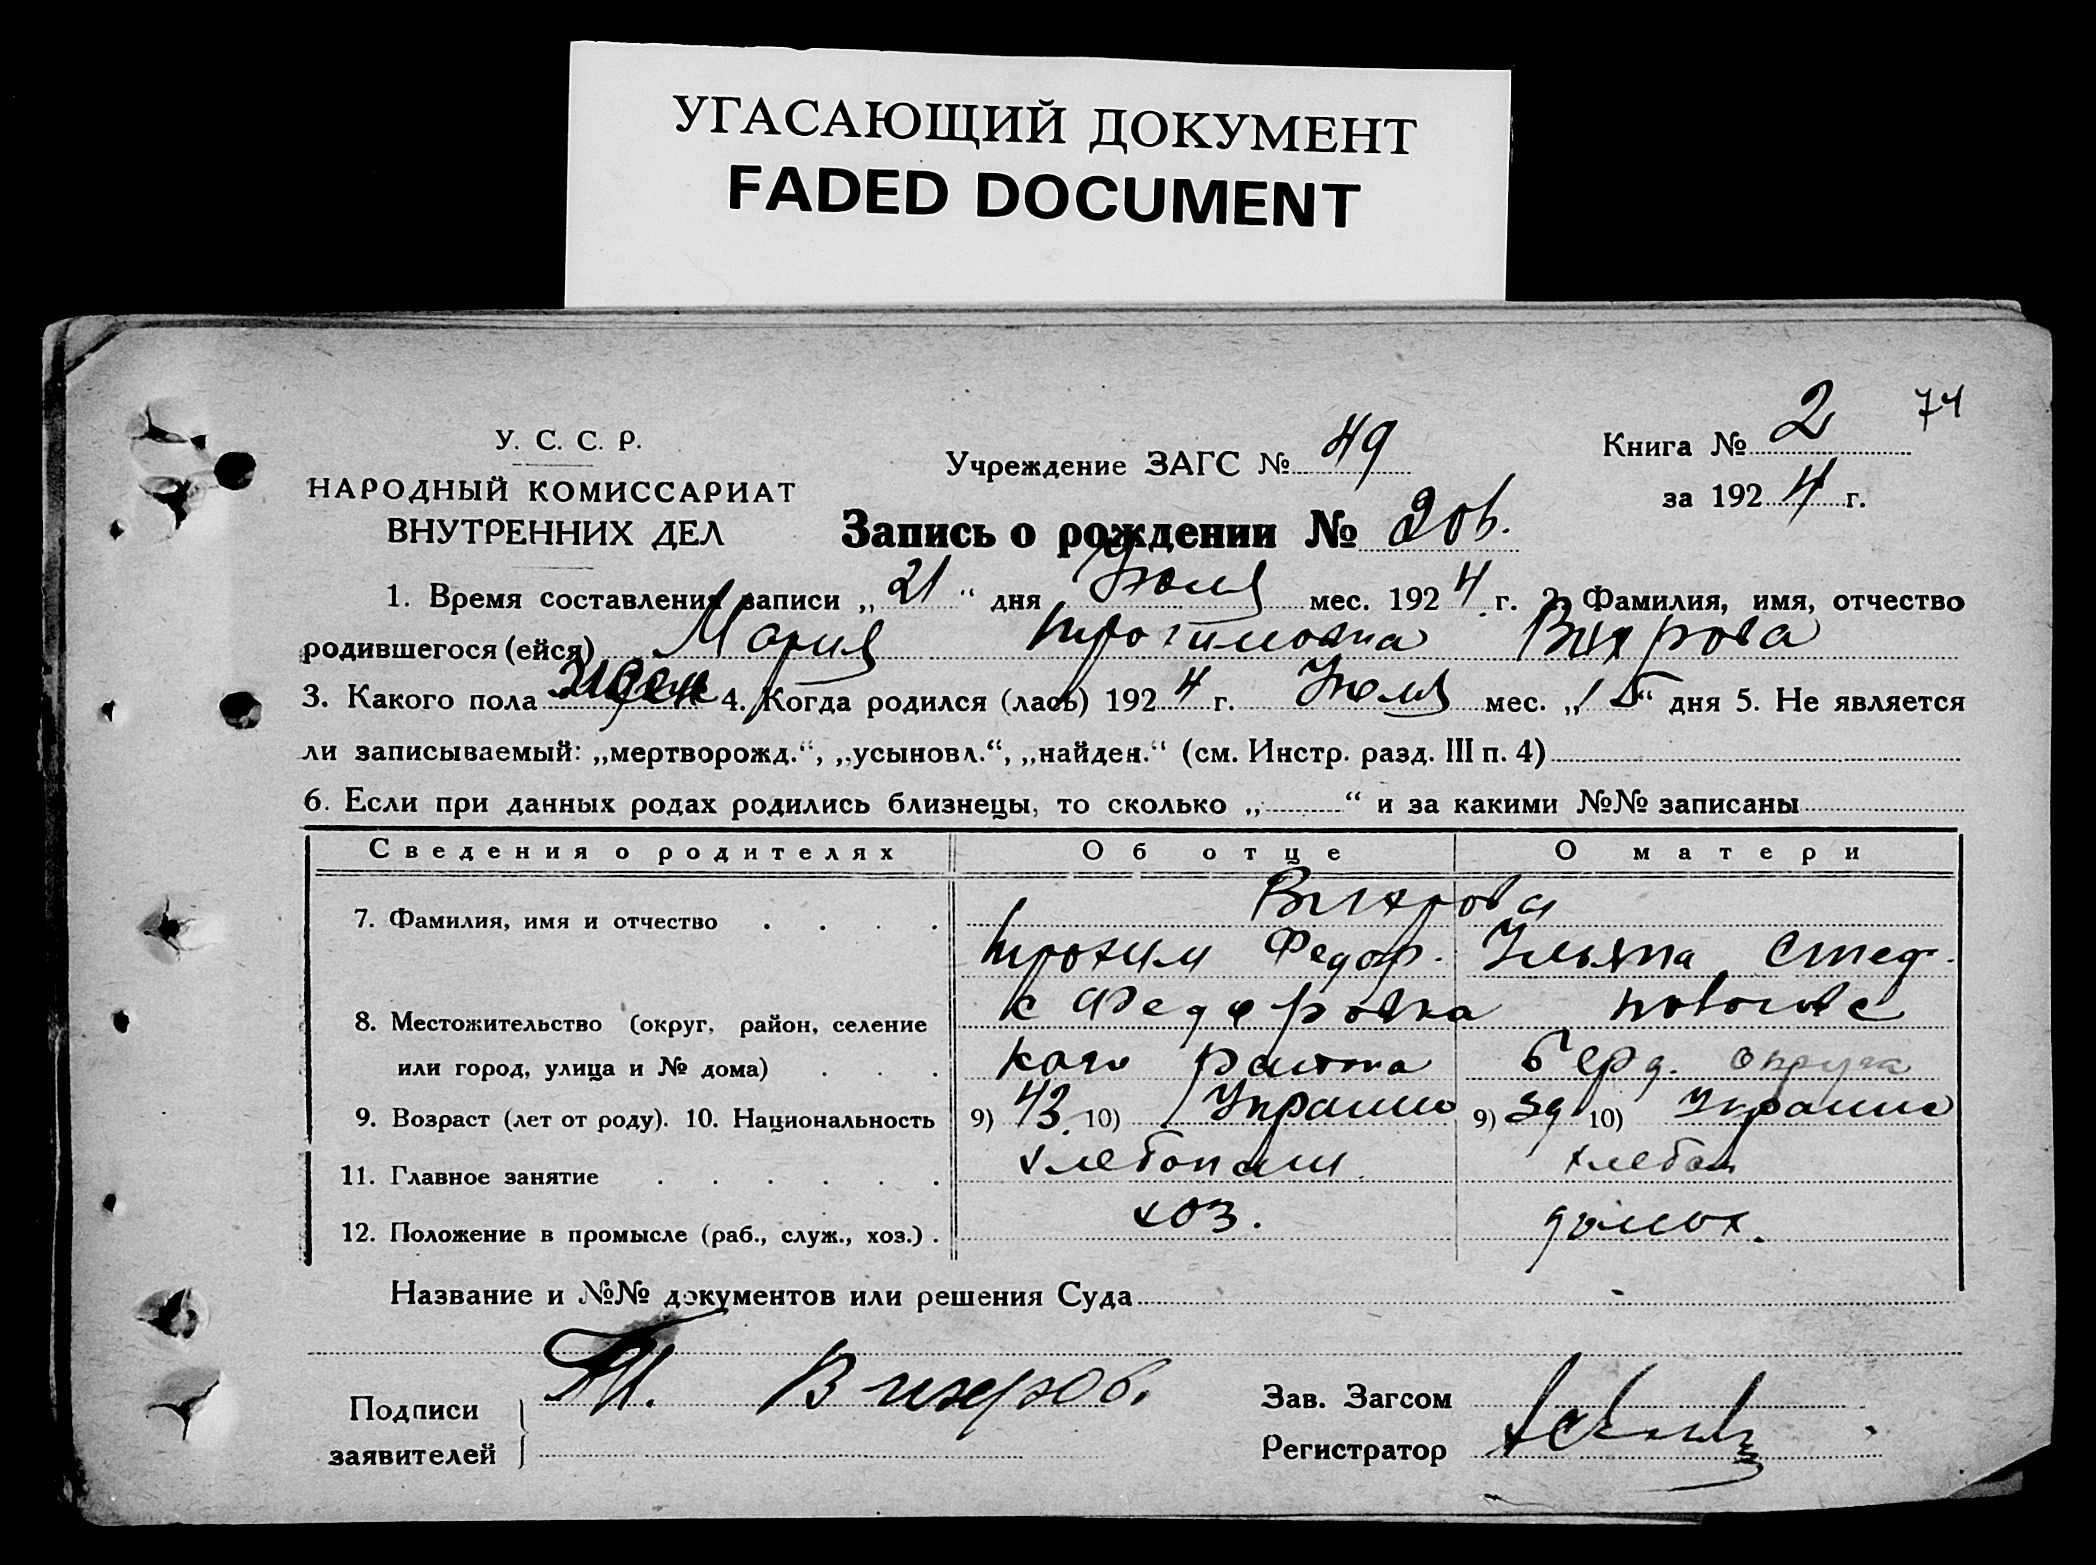 УГАСАЮЩИЙ ДОКУМЕНТ
FADED DOCUMENT
74
У. С. С. Р.
НАРОДНЫЙ КОМИССАРИАТ
ВНУТРЕННИХ ДЕЛ
Учреждение ЗАГС № 49
Книга № 2
за 1924 г.
Запись о рождении № 206.
1. Время составления записи „21“ дня Июля мес. 1924 г. 2. Фамилия, имя, отчество
родившегося (ейся) Мария Трохимовна Вихрова
3. Какого пола жен 4. Когда родился (лась) 1924 г. Июля мес. „15“ дня 5. Не является
ли записываемый: „мертворожд.“, „усыновл.“, „найден.“ (см. Инстр. разд. III п. 4)
6. Если при данных родах родились близнецы, то сколько „ “ и за какими №№ записаны
Сведения о родителях Об отце О матери
Вихрова
7. Фамилия, имя и отчество Трохим Федор. Ульяна Стеф.
8. Местожительство (округ, район, селение с Федоровка
или город, улица и № дома) кого района Берд. округа
9. Возраст (лет от роду). 10. Национальность 9) 43 10) Украин 9) 39 10) Украин
11. Главное занятие хлебопаш хлебоп
12. Положение в промысле (раб., служ., хоз.) хоз. домох.
Название и №№ документов или решения Суда
Подписи Т. Вихров. Зав. Загсом
заявителей Регистратор